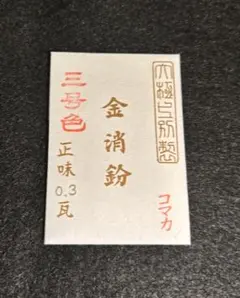 大極上別製
金消鈖
三号色
正味
0.3
瓦
コマカ